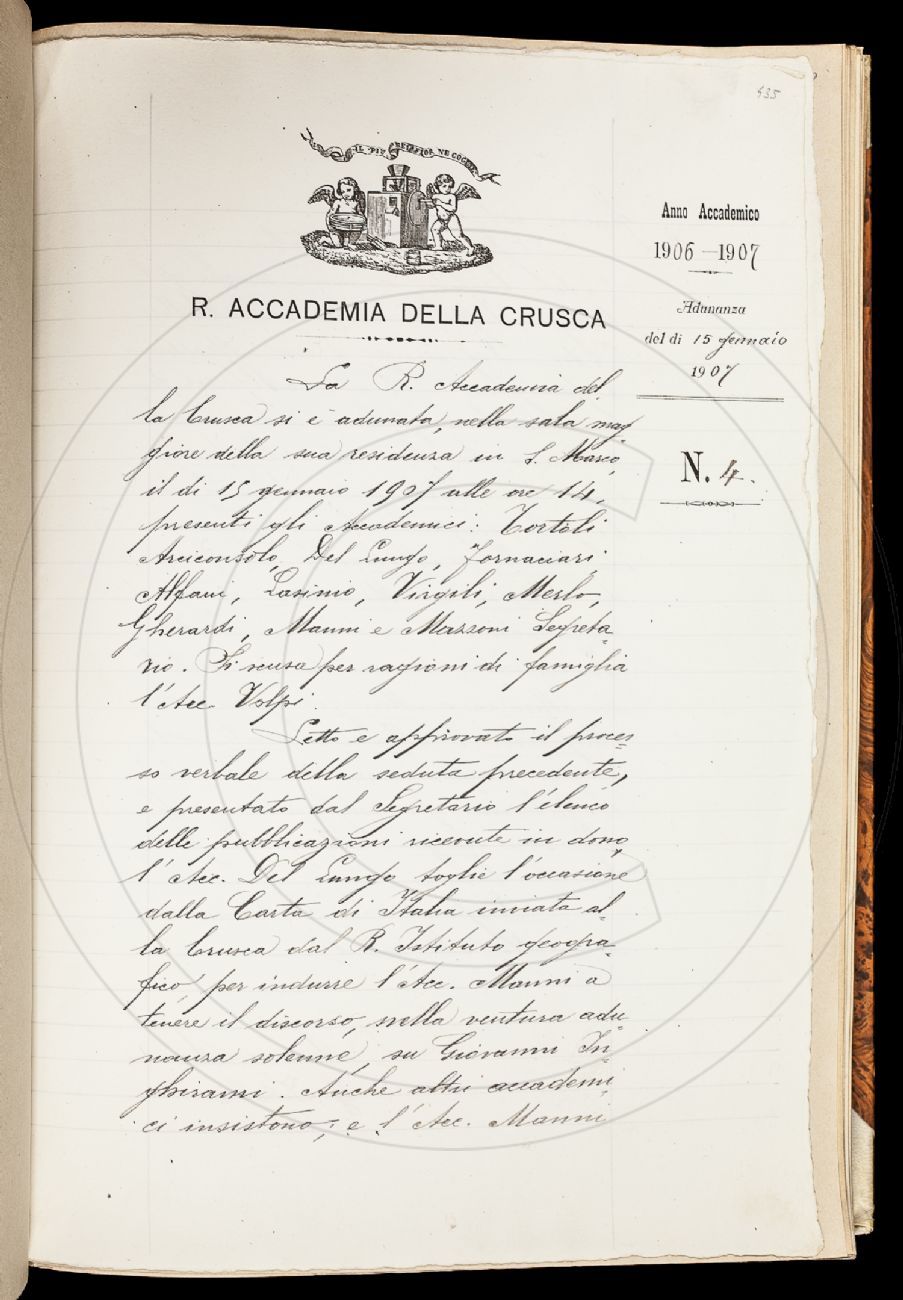 435
IL PIÙ BEL FIOR NE COGLIE
R. ACCADEMIA DELLA CRUSCA
Anno Accademico
1906-1907
Adunanza
del dì 15 gennaio
1907
N. 4.
La R. Accademia del
la Crusca si è adunata, nella sala mag
giore della sua residenza in S. Marco,
il dì 15 gennaio 1907 alle ore 14,
presenti gli Accademici: Tortoli
Arciconsolo, Del Lungo, Fornaciari,
Alfani, Lasinio, Virgili, Merlo,
Gherardi, Manni e Mazzoni Segreta-
rio. Si scusa per ragioni di famiglia
l'Acc. Volpi.
Letto e approvato il proces-
so verbale della seduta precedente,
e presentato dal Segretario l'elenco
delle pubblicazioni ricevute in dono,
l'Acc. Del Lungo toglie l'occasione
dalla Carta di Italia inviata al-
la Crusca dal R. Istituto geogra-
fico, per indurre l'Acc. Manni a
tenere il discorso, nella ventura adu-
nanza solenne, su Giovanni In-
ghirami. Anche altri accademi-
ci insistono; e l'Acc. Manni